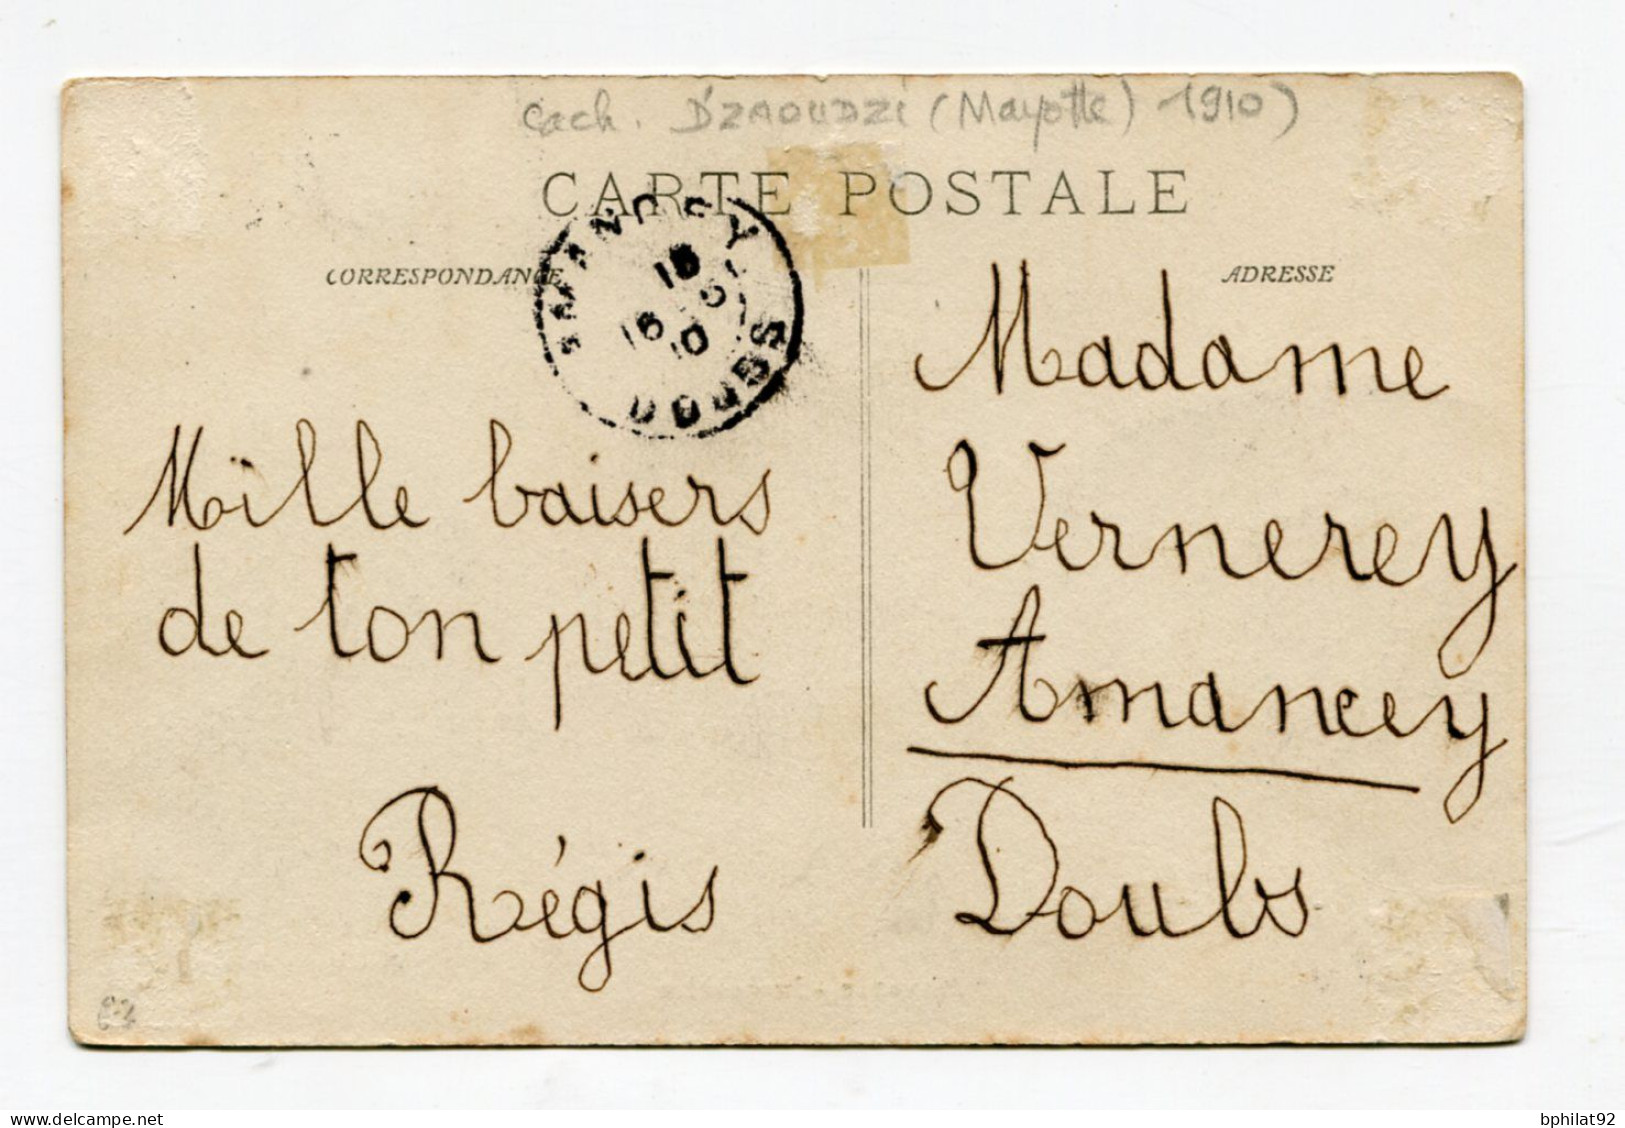 cach. D'ZAOUDZI (Mayotte) 1910)
CARTE POSTALE
CORRESPONDANCE
ADRESSE
AMANCEY
18
16 5
10
DOUBS
Mille baisers
de ton petit
Régis
Madame
Vernerey
Amancey
Doubs
delcampe.net
bphilat92